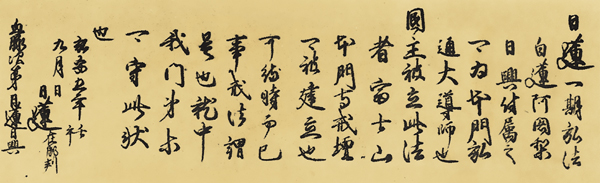 日蓮一期弘法
白蓮阿闍梨
日興付属之
可為本門弘
通大導師也
國主被立此法
者富士山
本門寺戒壇
可被建立也
可待時而已
事戒法謂
是也就中
我門弟等
可守此状
也
弘安五年壬午
九月日
日蓮在御判
血脈次第日蓮日興